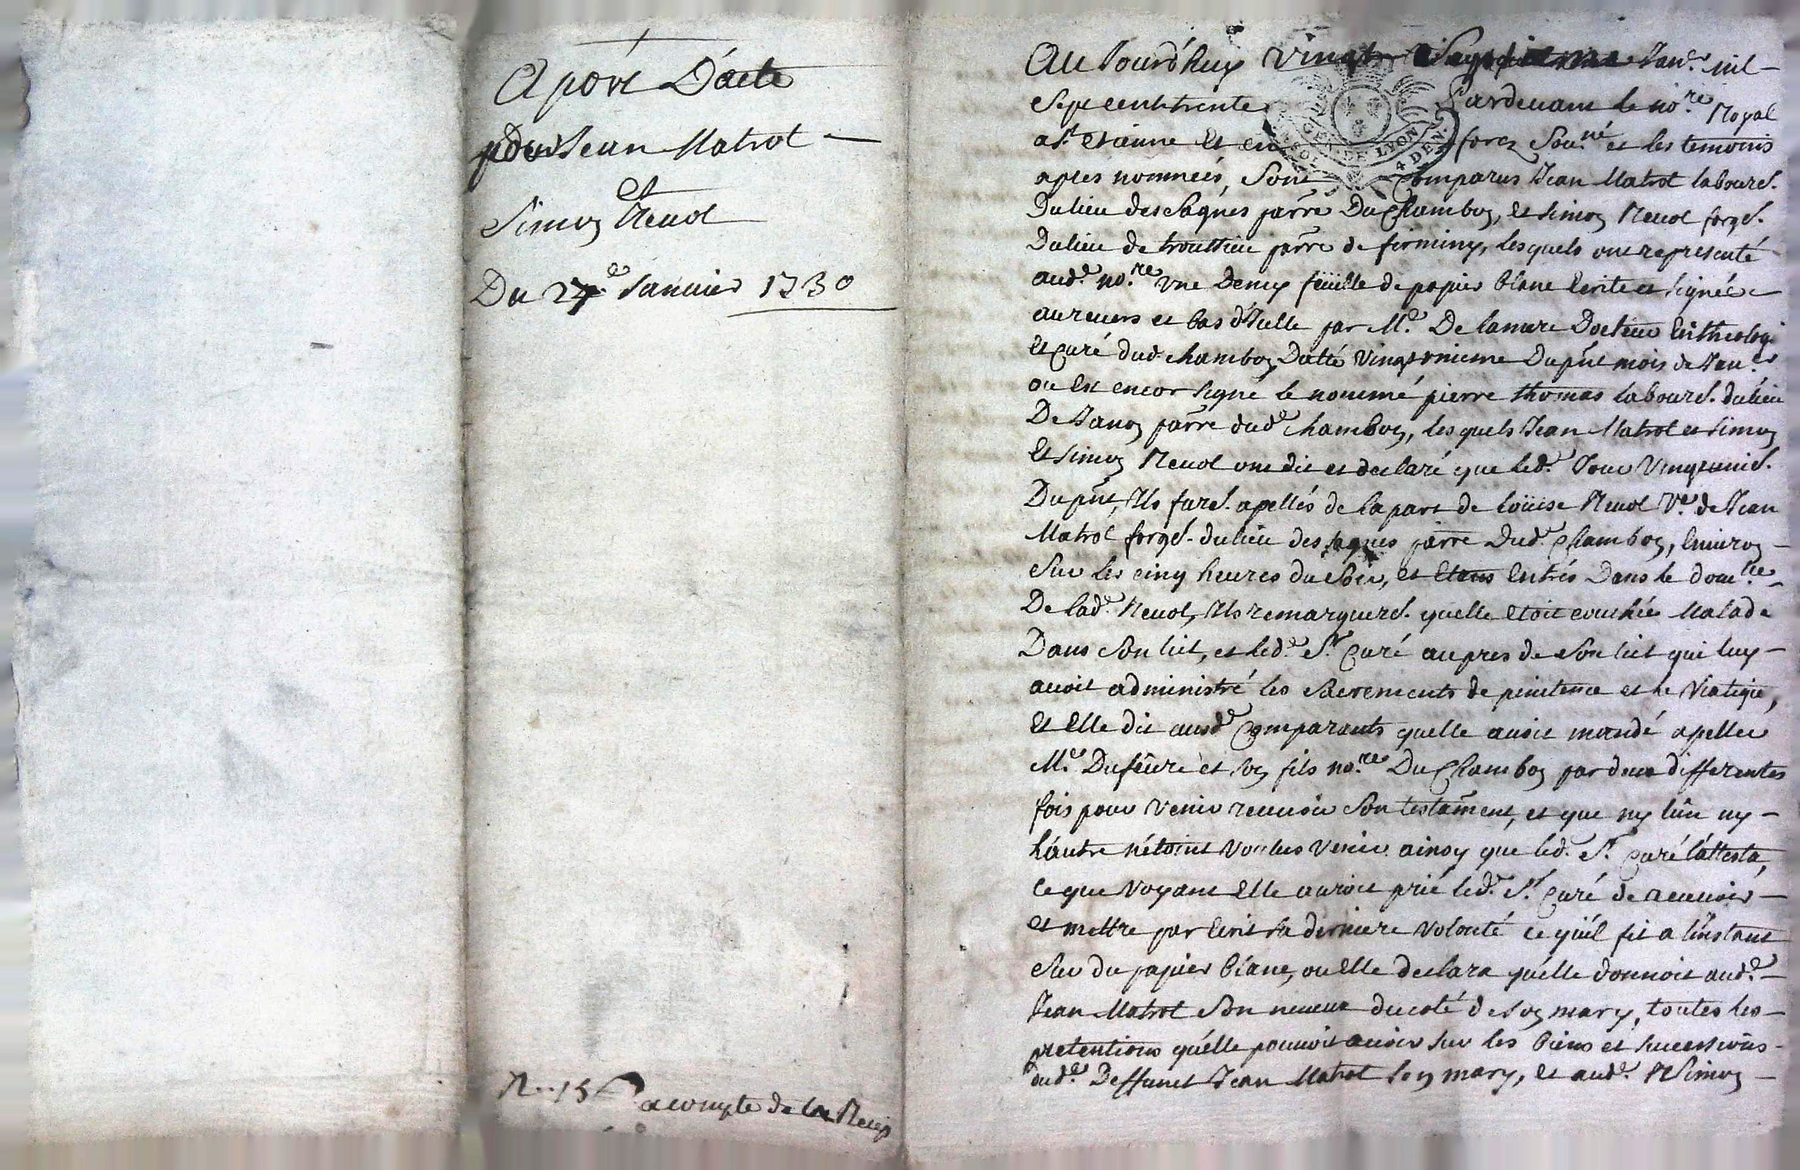 Apôrt D'acte
pour Jean Matrot —
Et
Simon Reuol
Du 27e Januier 1730
R. 13 s a compte de la Recep
Au Jourd'huy vingt Septieme Janr. mil —
Sept cent trente Pardeuant le nore. Royal
a St Etienne Et en forez Sousné et les temoins
apres nommeés, Sont Comparus Jean Matrot labourr.
Du lieu des Saques parre Du Chambon, Et Simon Reuol forgr.
Du lieu de trouttieu parre de firminy, lesquels ont representé
audt. nore. vne Demy feüille de papier blanc Ecrite et Signée
au reuers et bas d'Icelle par Me. De lamure Docteur En theologie
Et Curé dud. chambon Datté vingt unieme Du pñt mois de Janr.
ou Est encor Signé le nommé pierre thomas labourr. du lieu
De Janon parre dudt. Chambon, lesquels Jean Matrot et Simon
Et Simon Reuol ont dit et declaré que led. Jour vingt unie.
Du pñt, Ils furt. apellés de la part de Loüise Reuol Ve. de Jean
Matrot forgr. du lieu des Saques parre Dud. Chambon, Enuiron —
Sur les cinq heures du Soir, et Etans Entrés Dans le domlle.
De lade. Reuol, Ils remarquert. quelle Etoit couchée Malade
Dans Son lit, et led. Sr. Curé aupres de Son lit qui luy —
auoit administré les Sacrements de penitence et le Viatique,
Et Elle dit ausd. Comparants quelle auoit mandé apeller
Me. Dufeüre et Son fils nore. Du Chambon par deux differentes
fois pour Venir receuoir Son testament, et que ny l'un ny —
l'autre n'étoint Voulus Venir. ainsy que led. Sr. Curé l'attesta,
Ce que Voyant Elle auroit prié led. Sr. Curé de receuoir —
Et mettre par Ecrit Sa derniere Volonté ce qu'il fit a l'instant
Sur du papier blanc, ou Elle declara qu'elle donnoit audt. —
Jean Matrot Son neueu du coté de Son mary, toutes les —
pretentions qu'elle pouuoit auoir Sur les biens et Successions —
dudt. Deffunct Jean Matrot Son mary, Et aud. Simon —